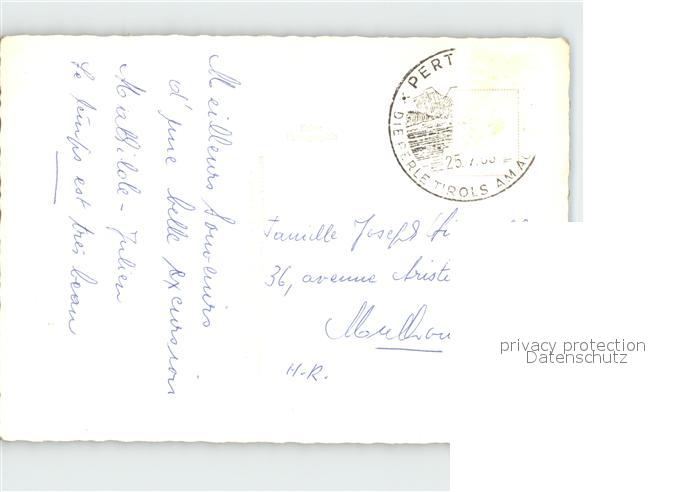 Meilleurs Souvenirs
d'une belle excursion
Mathilde - Julien
Le temps est très beau
PERT
DIE PERLE TIROLS AM A
25.7.
Famille Joseph
36, avenue Ariste
H.-R.
privacy protection
Datenschutz